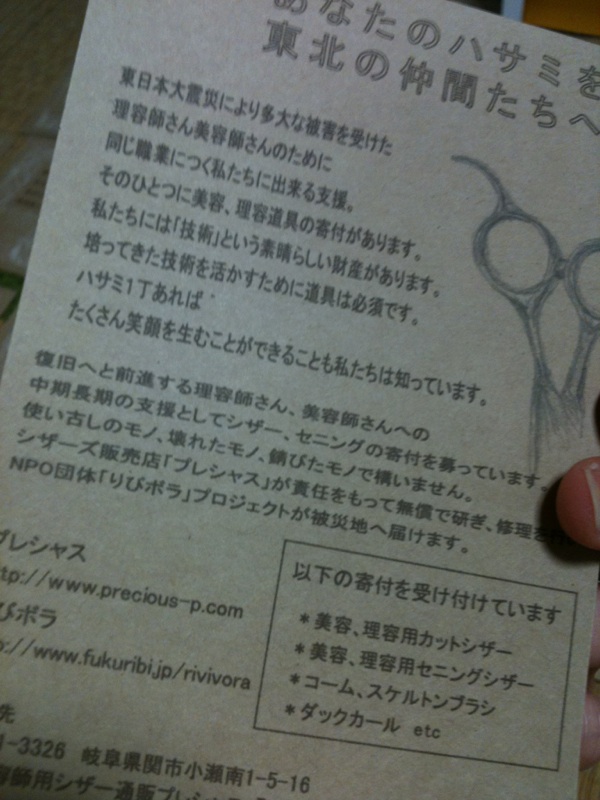 あなたのハサミを
東北の仲間たちへ
東日本大震災により多大な被害を受けた
理容師さん美容師さんのために
同じ職業につく私たちに出来る支援。
そのひとつに美容、理容道具の寄付があります。
私たちには「技術」という素晴らしい財産があります。
培ってきた技術を活かすために道具は必須です。
ハサミ1丁あれば
たくさん笑顔を生むことができることも私たちは知っています。
復旧へと前進する理容師さん、美容師さんへの
中期長期の支援としてシザー、セニングの寄付を募っています。
使い古しのモノ、壊れたモノ、錆びたモノで構いません。
シザーズ販売店「プレシャス」が責任をもって無償で研ぎ、修理を
NPO団体「りびボラ」プロジェクトが被災地へ届けます。
プレシャス
tp://www.precious-p.com
びボラ
p://www.fukuribi.jp/rivivora
先
1-3326 岐阜県関市小瀬南1-5-16
容師用シザー通販プレシャス
以下の寄付を受け付けています
*美容、理容用カットシザー
*美容、理容用セニングシザー
*コーム、スケルトンブラシ
*ダックカール etc